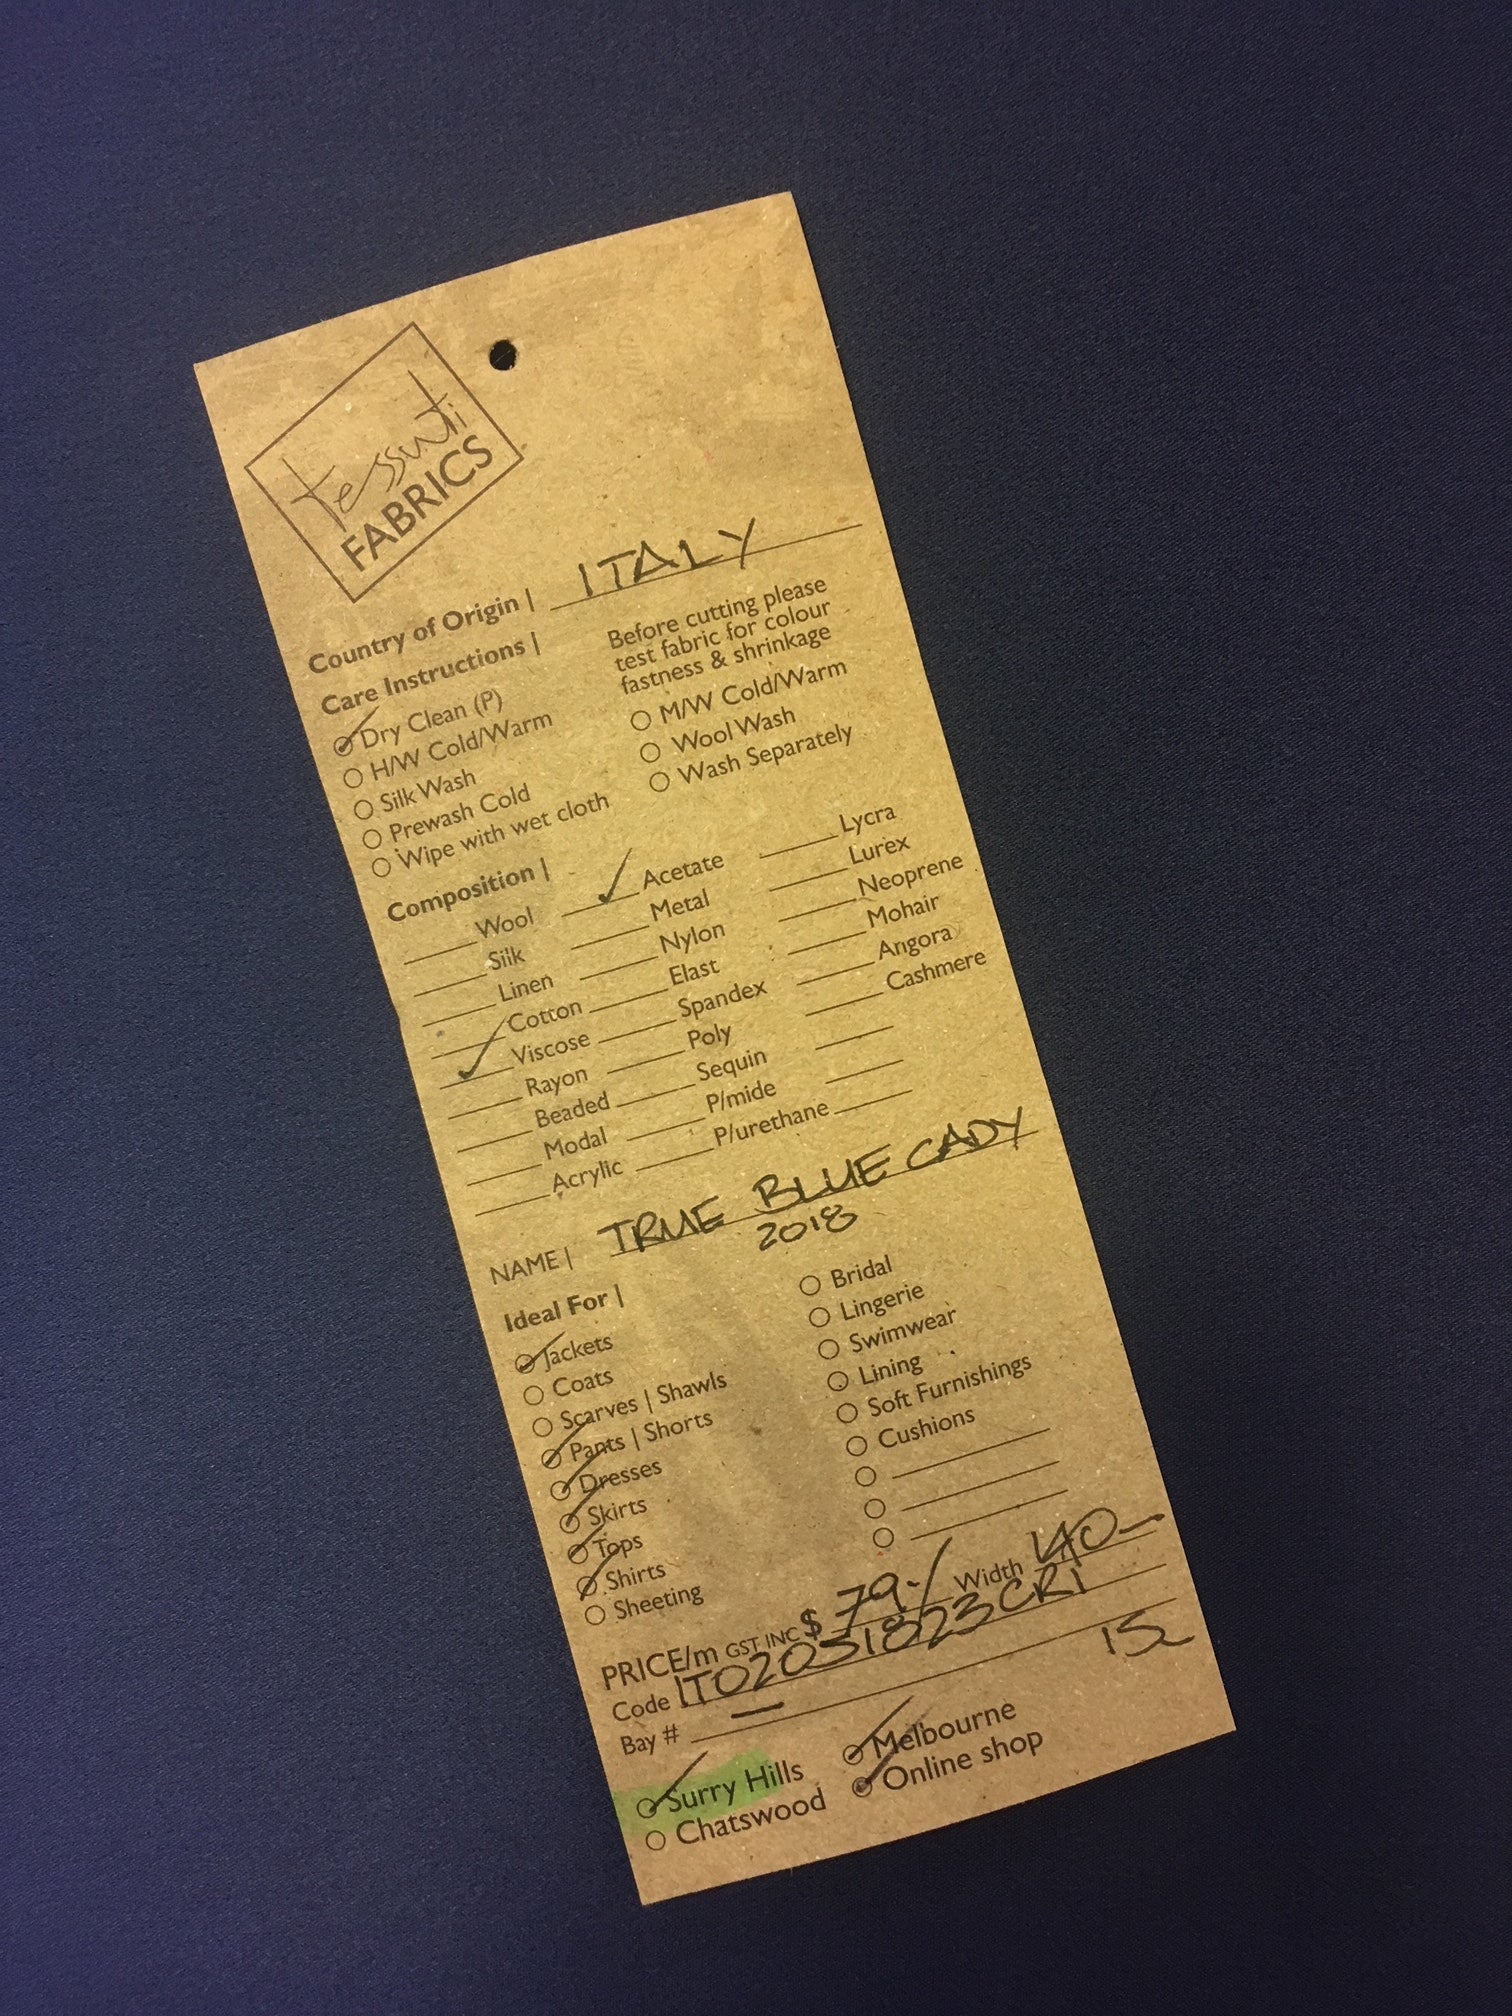 tessuti
FABRICS
Country of Origin | ITALY
Care Instructions |
Before cutting please
test fabric for colour
fastness & shrinkage
Dry Clean (P)
H/W Cold/Warm
Silk Wash
Prewash Cold
Wipe with wet cloth
M/W Cold/Warm
Wool Wash
Wash Separately
Composition |
Wool
Silk
Linen
Cotton
Viscose
Rayon
Beaded
Modal
Acrylic
Acetate
Metal
Nylon
Elast
Spandex
Poly
Sequin
P/mide
P/urethane
Lycra
Lurex
Neoprene
Mohair
Angora
Cashmere
NAME | TRUE BLUE CADY
2018
Ideal For |
Jackets
Coats
Scarves | Shawls
Pants | Shorts
Dresses
Skirts
Tops
Shirts
Sheeting
Bridal
Lingerie
Swimwear
Lining
Soft Furnishings
Cushions
PRICE/m GST INC $ 79.- / Width 140-
Code ITO2031823CRI
Bay # —
Surry Hills
Chatswood
Melbourne
Online shop